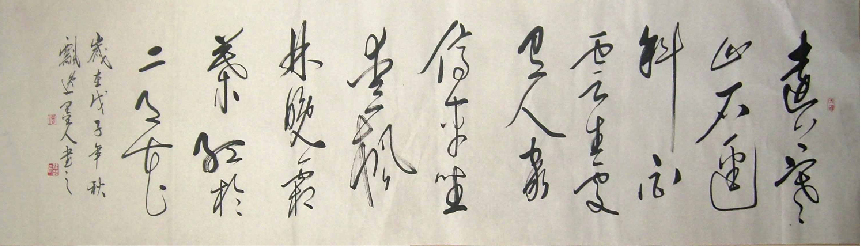 遠上寒
山石逕
斜白
雲生處
有人家
停車坐
愛楓
林晚霜
葉紅於
二月花
歲在戊子年秋
墨人書之